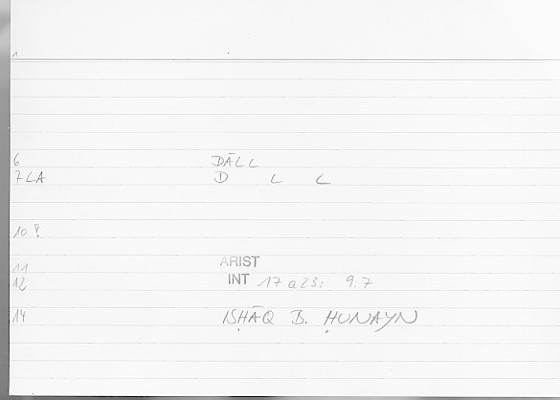 1
6 DĀLL
7 LA D L L
10
11 ARIST
12 INT 17 a 23: 9.7
14 ISḤĀQ B. ḤUNAYN